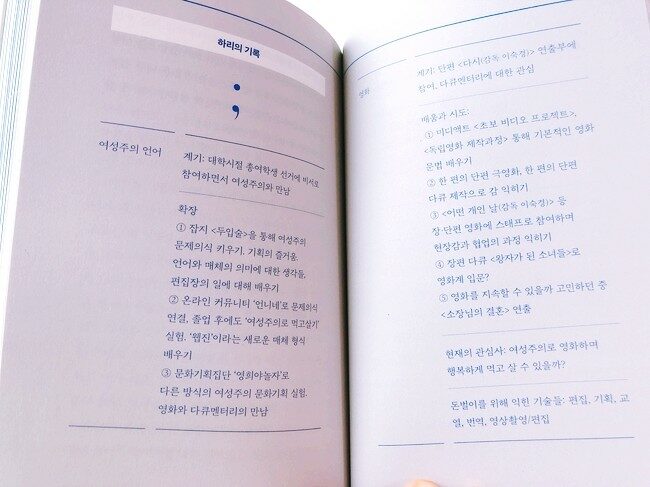 하리의 기록
;
여성주의 언어
계기: 대학시절 총여학생 선거에 비서로
참여하면서 여성주의와 만남
확장
① 잡지 <두입술>을 통해 여성주의
문제의식 키우기. 기획의 즐거움,
언어와 매체의 의미에 대한 생각들,
편집장의 일에 대해 배우기
② 온라인 커뮤니티 '언니네'로 문제의식
연결, 졸업 후에도 '여성주의로 먹고살기'
실험. '웹진'이라는 새로운 매체 형식
배우기
③ 문화기획집단 '영희야놀자'로
다른 방식의 여성주의 문화기획 실험.
영화와 다큐멘터리의 만남
영화
계기: 단편 <다시(감독 이숙경)> 연출부에
참여, 다큐멘터리에 대한 관심
배움과 시도:
① 미디액트 <초보 비디오 프로젝트>,
<독립영화 제작과정> 통해 기본적인 영화
문법 배우기
② 한 편의 단편 극영화, 한 편의 단편
다큐 제작으로 감 익히기
③ <어떤 개인 날(감독 이숙경)> 등
장·단편 영화에 스태프로 참여하며
현장감과 협업의 과정 익히기
④ 장편 다큐 <왕자가 된 소녀들>로
영화계 입문?
⑤ 영화를 지속할 수 있을까 고민하던 중
<소장님의 결혼> 연출
현재의 관심사: 여성주의로 영화하며
행복하게 먹고 살 수 있을까?
돈벌이를 위해 익힌 기술들: 편집, 기획, 교
열, 번역, 영상촬영/편집